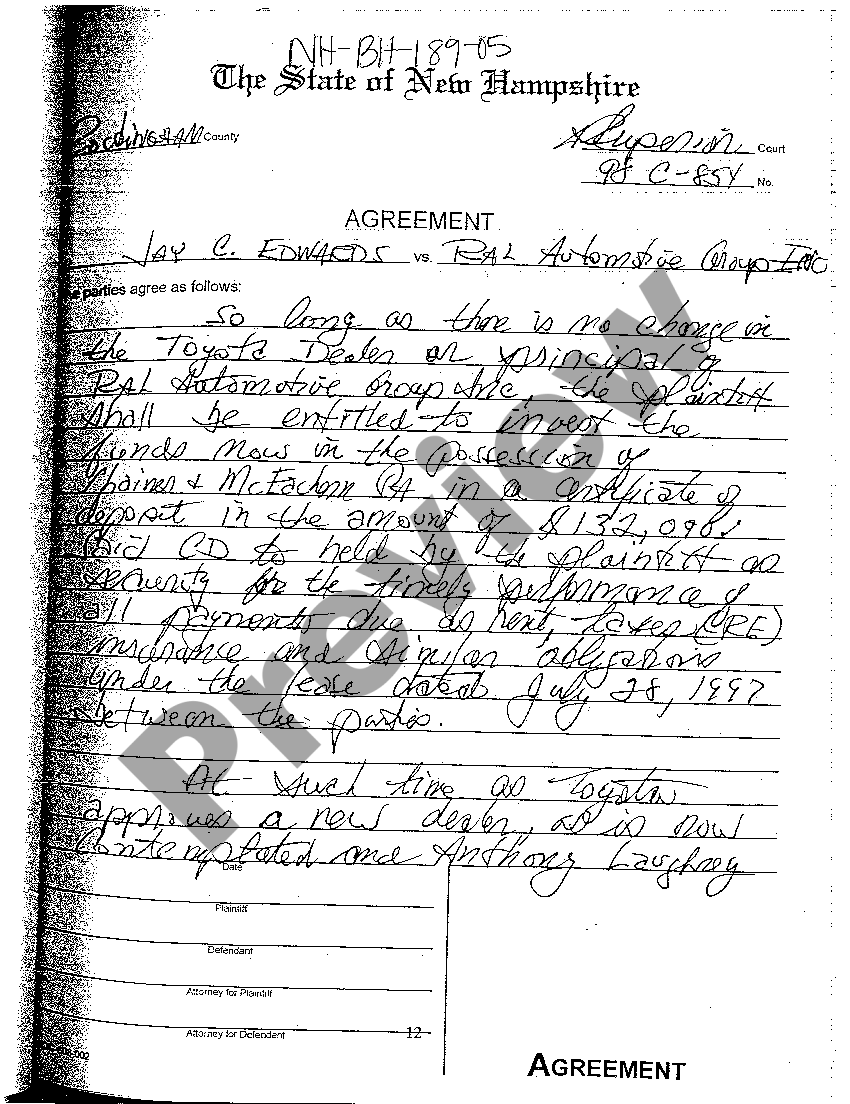 NH-BH-189-05
The State of New Hampshire
Rockingham County
Superior Court
98 C-854 No.
AGREEMENT
JAY C. EDWARDS vs. RAL Automotive Group INC
The parties agree as follows:
So long as there is no change in
the Toyota Dealer or principal of
RAL Automotive Group Inc, the plaintiff
shall be entitled to invest the
funds now in the possession of
Shaines & McEachern PA in a certificate of
deposit in the amount of $132,098.
Said CD to held by the plaintiff as
security for the timely performance of
all payments due as rent, taxes (RE)
insurance and similar obligations
under the lease dated July 28, 1997
between the parties.
At such time as Toyota
approves a new dealer, as is now
Contemplated and Anthony Laughrey
Date
Plaintiff
Defendant
Attorney for Plaintiff
Attorney for Defendant
12
002
AGREEMENT
Preview